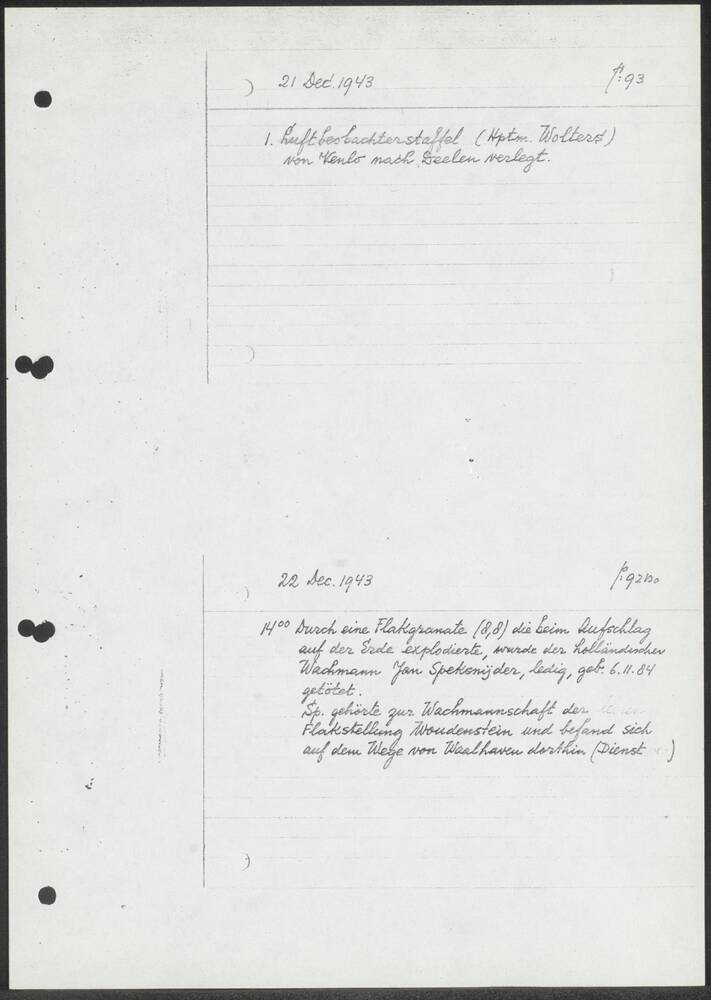 21 Dec. 1943 f: 93
1. Luftbeobachterstaffel (Hptm. Wolters)
von Venlo nach Deelen verlegt.
22 Dec. 1943 f: 92 vso
14⁰⁰ Durch eine Flakgranate (8,8) die beim Aufschlag
auf der Erde explodierte, wurde der holländischer
Wachmann Jan Speksnijder, ledig, geb. 6.11.84
getötet.
Sp. gehörte zur Wachmannschaft der
Flakstellung Woudenstein und befand sich
auf dem Wege von Waalhaven dorthin (Dienst )